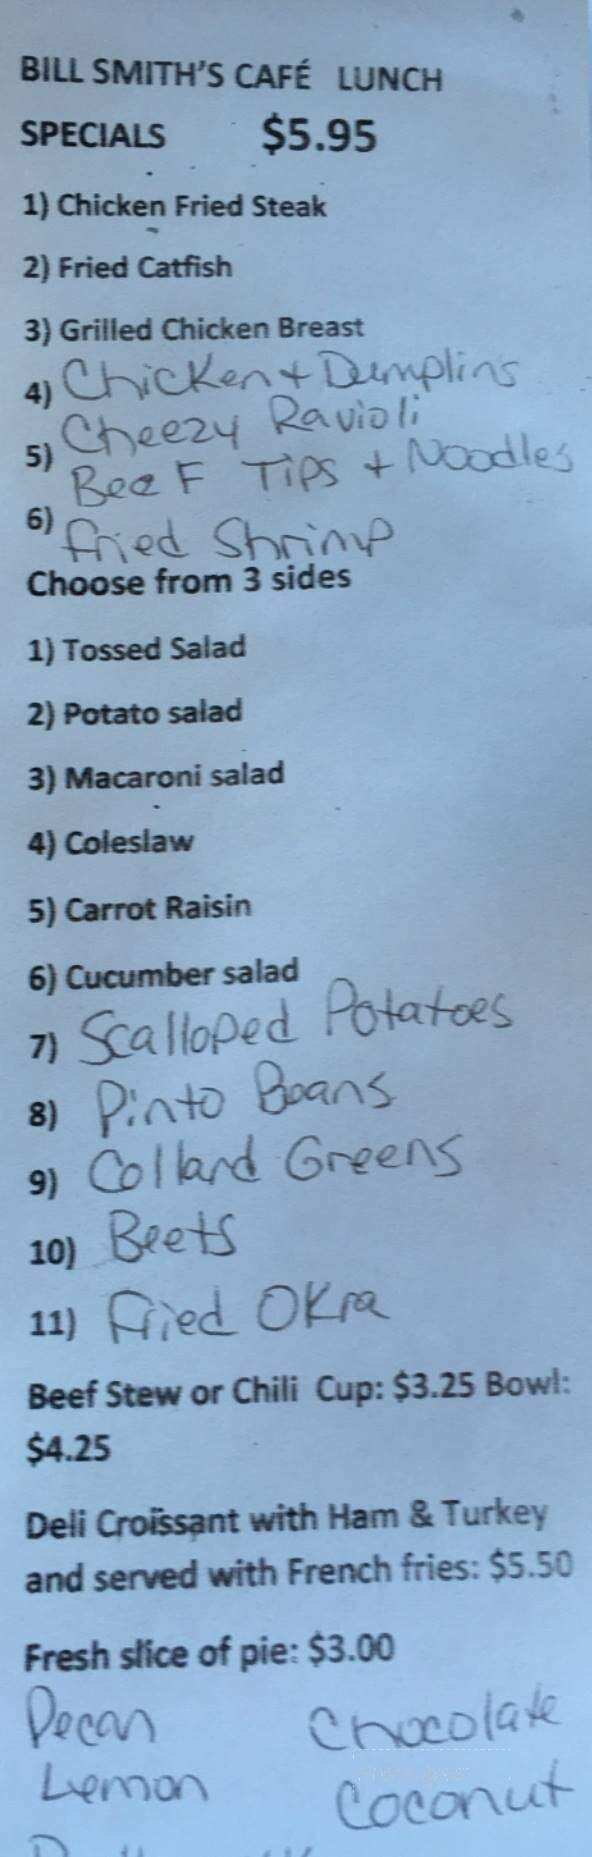 BILL SMITH'S CAFÉ LUNCH
SPECIALS $5.95
1) Chicken Fried Steak
2) Fried Catfish
3) Grilled Chicken Breast
4) Chicken + Dumplins
Cheezy Ravioli
5) Beef Tips + Noodles
6) Fried Shrimp
Choose from 3 sides
1) Tossed Salad
2) Potato salad
3) Macaroni salad
4) Coleslaw
5) Carrot Raisin
6) Cucumber salad
7) Scalloped Potatoes
8) Pinto Beans
9) Collard Greens
10) Beets
11) Fried Okra
Beef Stew or Chili Cup: $3.25 Bowl:
$4.25
Deli Croissant with Ham & Turkey
and served with French fries: $5.50
Fresh slice of pie: $3.00
Pecan Chocolate
Lemon Coconut